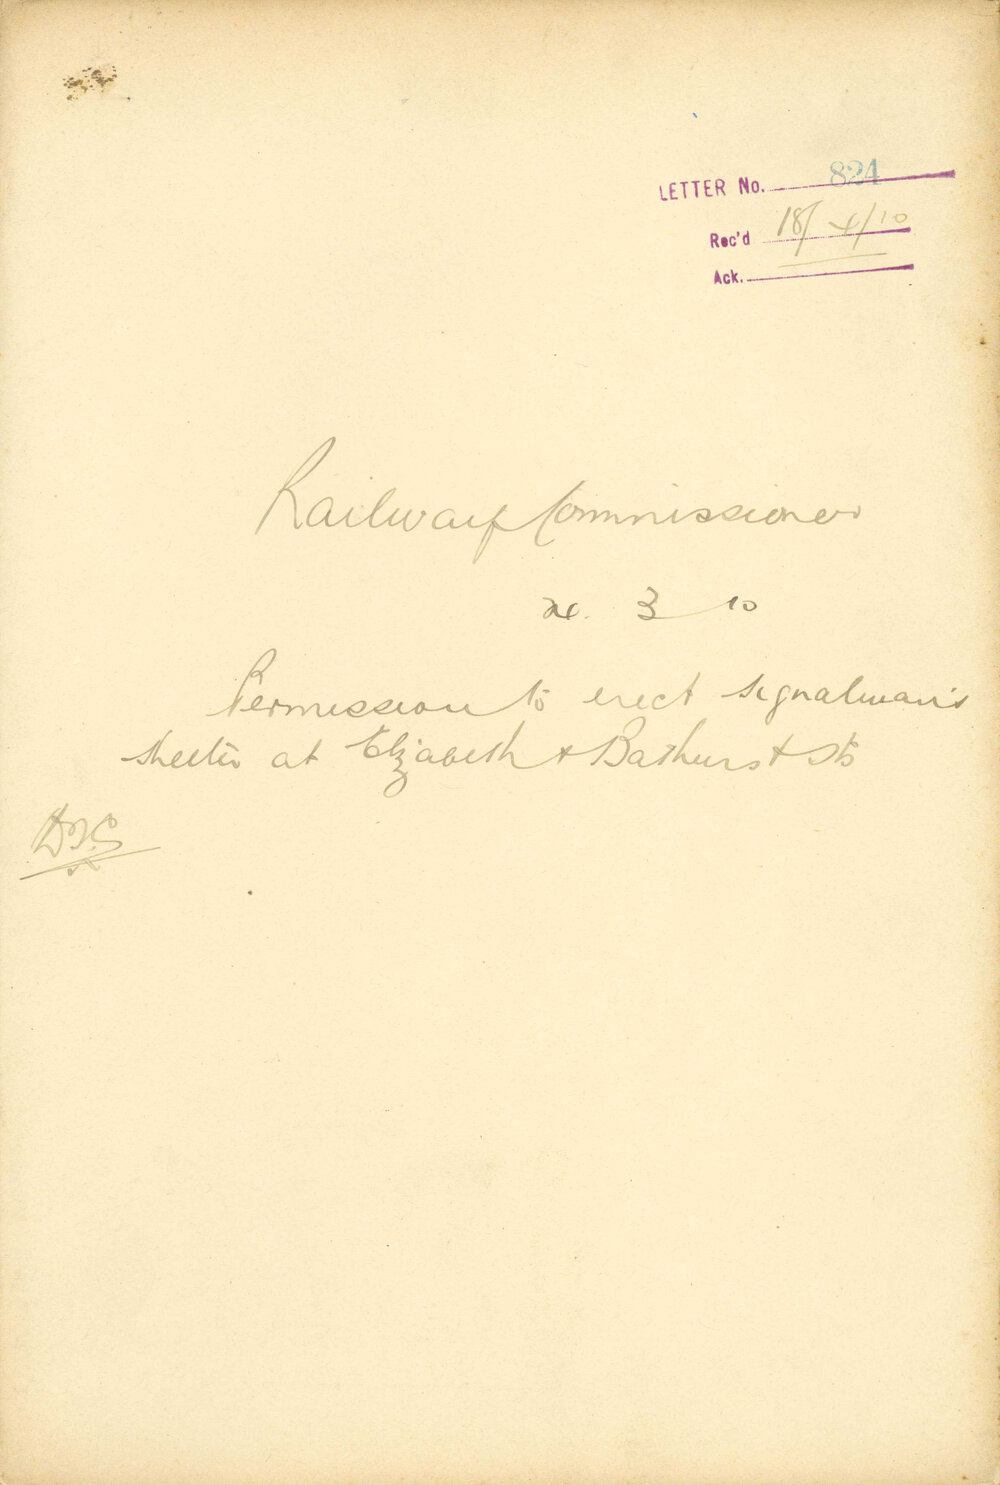 LETTER No. 824
Rec'd 18/4/10
Ack.
Railway Commissioner
3 10
Permission to erect signalman's
shelter at Elizabeth & Bathurst Sts